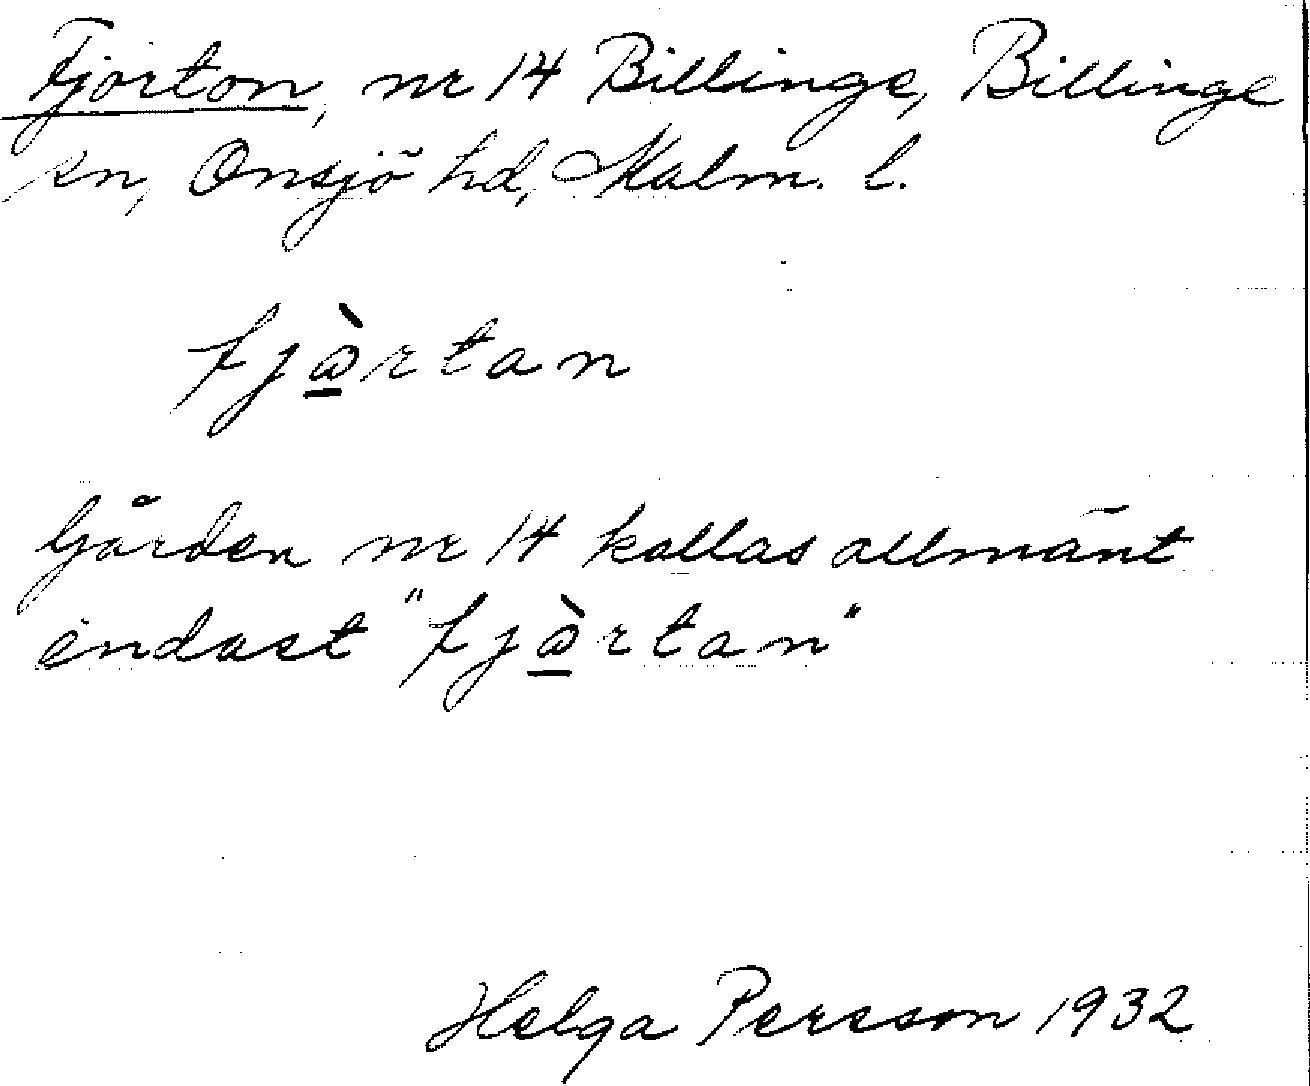 Fjorton, nr 14 Billinge, Billinge
sn, Onsjö hd, Malm. l.
fjə̠̀rtan
Gården nr 14 kallas allmänt
endast "fjə̠̀rtan"
Helga Persson 1932